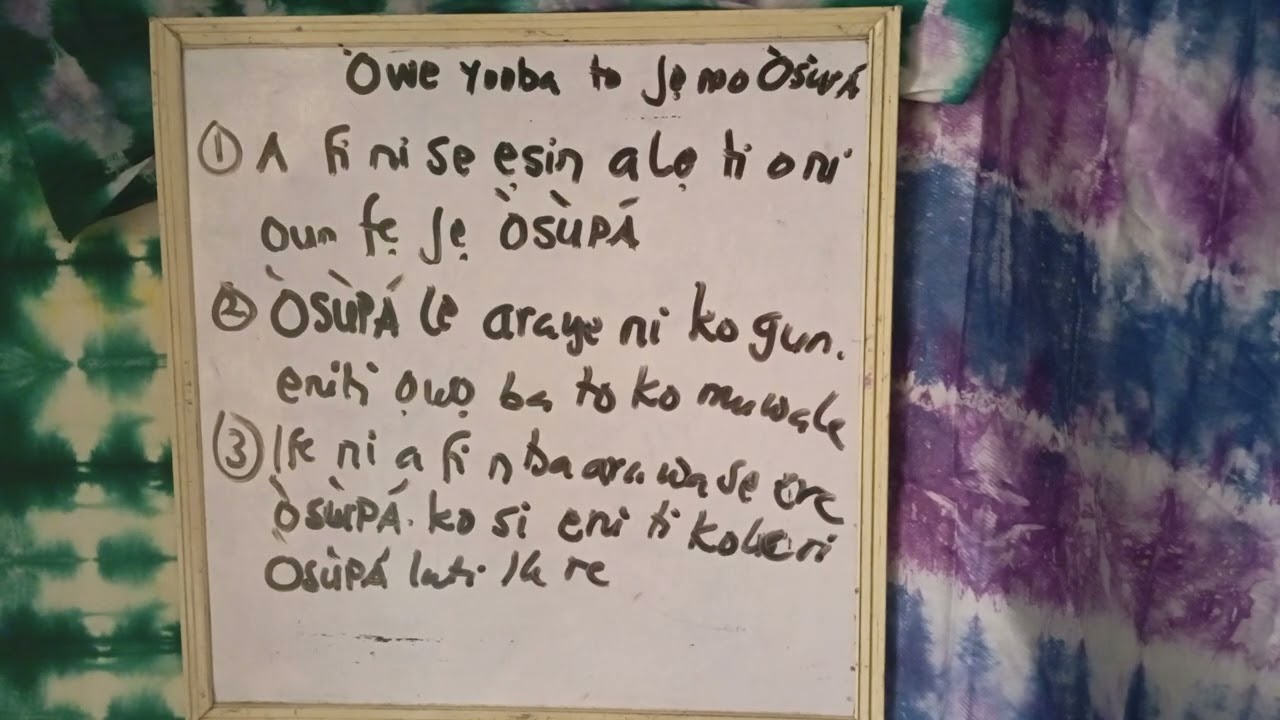 Òwe Yooba to Jẹ mo ÒSÙPÁ
① A fi ni se ẹsin alẹ ti oni
oun fẹ Jẹ ÒSÙPÁ
② ÒSÙPÁ le araye ni ko gun.
eniti ọwọ ba to ko muwale
③ Ife ni a fi n ba ara wa Sẹ ore
ÒSÙPÁ. ko si eni ti kole ri
OSÙPÁ lati lé re